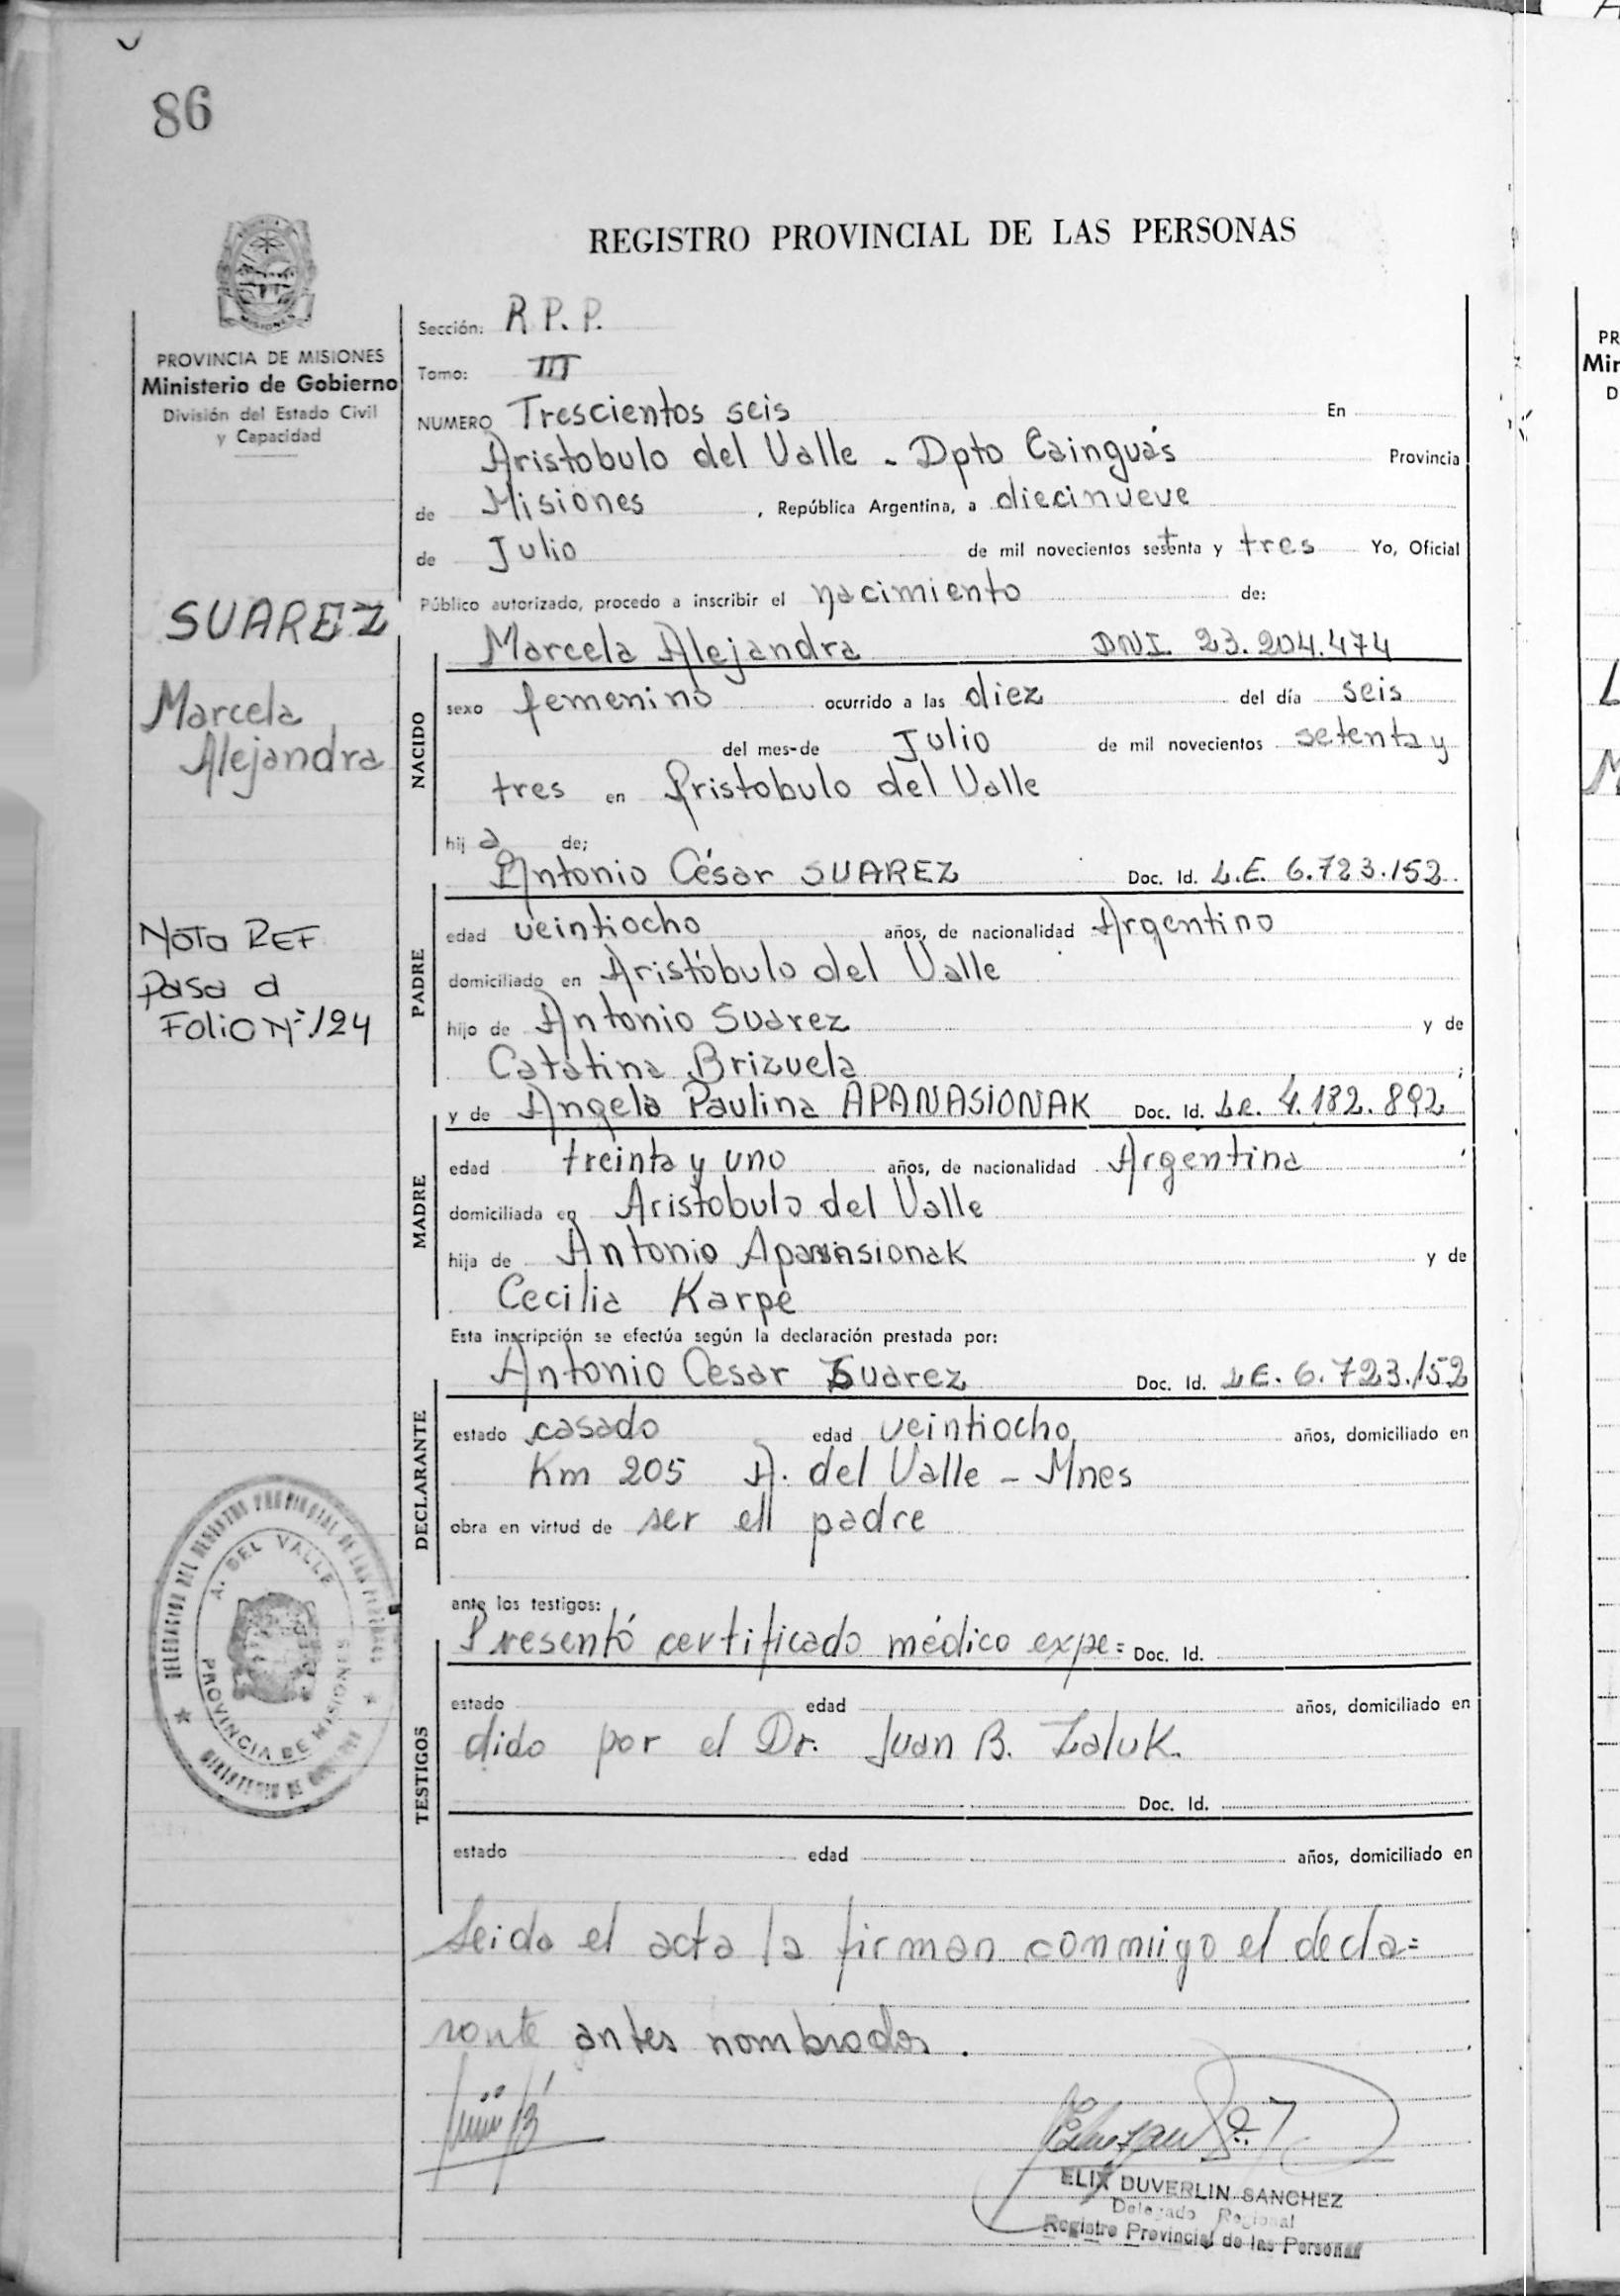 86
REGISTRO PROVINCIAL DE LAS PERSONAS
MISIONES
PROVINCIA DE MISIONES
Ministerio de Gobierno
División del Estado Civil
y Capacidad
SUAREZ
Marcela
Alejandra
Nota REF
Pasa a
Folio Nº 124
Sección: R.P.P.
Tomo: III
NUMERO Trescientos seis En
Aristobulo del Valle - Dpto Cainguás Provincia
de Misiones , República Argentina, a diecinueve
de Julio de mil novecientos setenta y tres Yo, Oficial
Público autorizado, procedo a inscribir el nacimiento de:
Marcela Alejandra DNI 23.204.474
NACIDO
sexo femenino ocurrido a las diez del día seis
del mes de Julio de mil novecientos setenta y
tres en Aristobulo del Valle
hij a de;
Antonio César SUAREZ Doc. Id. L.E. 6.723.152
PADRE
edad veintiocho años, de nacionalidad Argentino
domiciliado en Aristóbulo del Valle
hijo de Antonio Suarez y de
Catatina Brizuela ;
y de Angela Paulina APANASIONAK Doc. Id. L.C. 4.182.892
MADRE
edad treinta y uno años, de nacionalidad Argentina
domiciliada en Aristobulo del Valle
hija de Antonio Apanasionak y de
Cecilia Karpe
Esta inscripción se efectúa según la declaración prestada por:
Antonio Cesar Suarez Doc. Id. L.E. 6.723.152
DECLARANTE
estado casado edad veintiocho años, domiciliado en
Km 205 A. del Valle - Mnes
obra en virtud de ser ell padre
ante los testigos:
Presentó certificado médico expe= Doc. Id.
TESTIGOS
estado edad años, domiciliado en
dido por el Dr. Juan B. Zaluk.
Doc. Id.
estado edad años, domiciliado en
Leida el acta la firman conmigo el decla=
rante antes nombrados.
DELEGACION DEL REGISTRO PROVINCIAL DE LAS PERSONAS
A. DEL VALLE
PROVINCIA DE MISIONES
MINISTERIO DE GOBIERNO
ELIX DUVERLIN SANCHEZ
Delegado Regional
Registro Provincial de las Personas